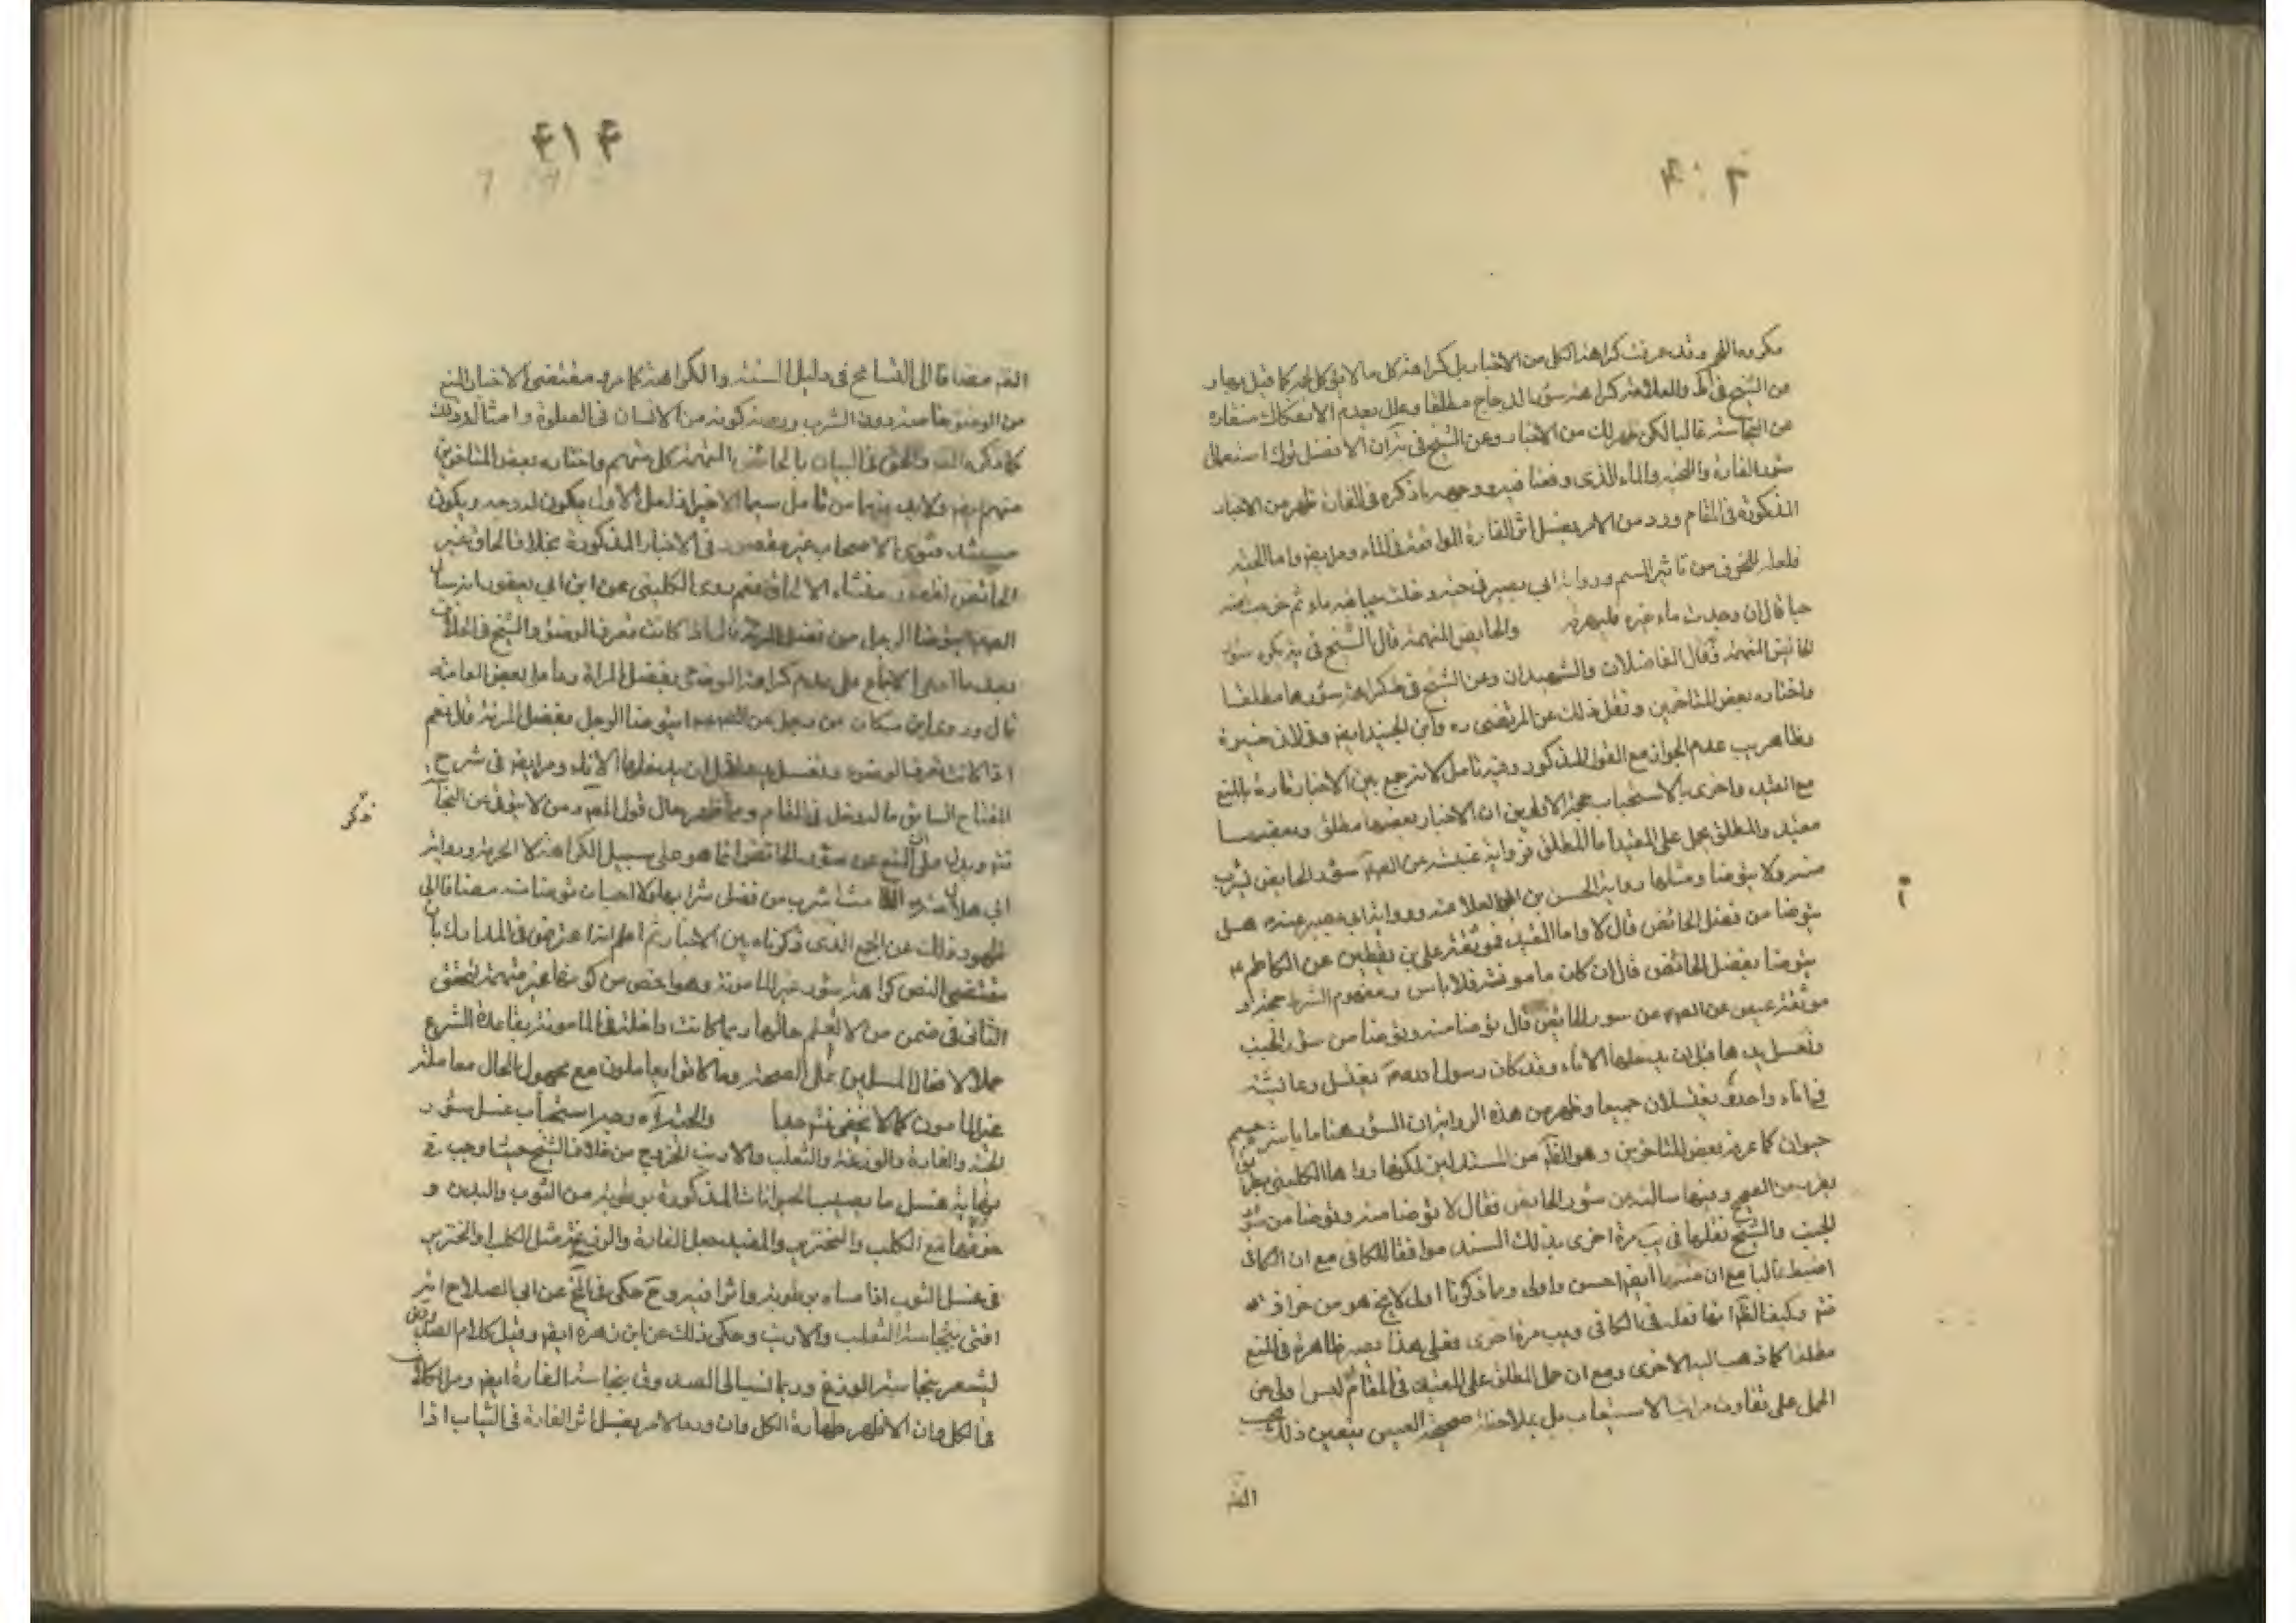 مكروه اللحم وقد عرفت كراهة الكل من الاخبار بل كراهة كل ما لا يؤكل لحمه كما قيل
عن الشيخ في ط والعلامة كراهة سؤر الدجاج مطلقا وعلل بعدم الانفكاك منقاره
من النجاسة غالبا لكن من الاخبار وعن الشيخ في ية ان الافضل ترك استعمال
سؤر الفارة والحية والماء الذى وقعتا فيه ووجهه ما ذكره في الفارة ظهر من الاخبار
المذكورة في المقام وورد من الامر بغسل اثر الفارة الواقعة في الماء ومر ايض واما الحية
فلعله للخوف من تاثير السم ورواية ابي بصير في حية دخلت حبا فيه ماء ثم خرجت منه
قال ان وجدت ماء غيره فليهرقه والحايض المتهمة قال الشيخ في ية يكره سؤر
الحائض المتهمة وقال الفاضلان والشهيدان وعن الشيخ في ط كراهة سؤرها مطلقا
واختاره بعض المتاخرين ونقل ذلك عن المرتضى ره وابن الجنيد ايض
وظاهر يب عدم الجواز مع القول المذكور وفيه تامل لانه جمع بين الاخبار تارة بالمنع
مع القيد واخرى بالاستحباب حجة الاولين ان الاخبار بعضها مطلق وبعضها
مقيد والمطلق يحمل على المقيد اما المطلق فرواية عنبسة عن الصم سؤر الحايض يشرب
منه ولا يتوضا ومثلها رواية الحسين بن ابي العلا عنه ورواية ابي بصير عنه هل
يتوضا من فضل الحائض قال لا واما المقيد فموثقة علي بن يقطين عن الكاظم ع
يتوضا بفضل الحائض قال ان كان مامونة فلا باس ومفهوم الشرط حجة و
موثقة عيص عن الصم عن سور الحايض قال توضا منه وتوضا من سؤر الجنب
وتغسل يدها قبل ان يدخلها الاناء وقد كان رسول الله ص يغتسل وعائشة
في اناء واحد يغتسلان جميعا وظهر من هذه الرواية ان السؤر هنا ما باشره جسم
حيوان كما عرفه بعض المتاخرين وهو الظ من المستدلين لكنها رواها الكليني
عن الصم وفيها سالته عن سؤر الحايض فقال لا توضا منه وتوضا من سؤر
الجنب والشيخ نقلها في يب مرة اخرى بذلك السند موافقا للكافي مع ان الكافي
اضبط غالبا مع ان ايض احسن واولى وما ذكرنا اولا لا يخ هو من حزازة
فتم وكيف الظ انها نقله في الكافي ويب مرة اخرى فعلى هذا تصير ظاهرة في المنع
مطلقا كما ذهب اليه الاخرى ومع ان حمل المطلق على المقيد في المقام ليس اولى من
الحمل على تفاوت مراتب الاستحباب بل بملاحظة صحيحة العيص يتعين ذلك
الظ
۴۱۴
الظ مضافا الى التسامح في دليل السنة والكراهة كما مر ومقتضى الاخبار المنع
من الوضوء خاصة دون الشرب كونه من الانسان في الصلوة وامثال ذلك
كما ذكره والحق في البيان بالحائض المتهمة كل متهم واختاره بعض المتاخرين
منهم ولا بد فيها من تامل سيما الاخير اذ لعل الاول يكون له وجه ويكون
مستنده فتوى الاصحاب غير مقصور في الاخبار المذكورة بخلاف الحاق غير
الحائض نعم روى الكليني عن ابن ابي يعفور انه سال
الصم يتوضا الرجل من فضل المرئة قال اذا كانت تعرف الوضوء والشيخ في الخلاف
بعد ما ادعى الاجماع على عدم كراهة الوضوء بفضل المراة بعض العامة
قال وروى ابن مسكان عن رجل عن الصم ايتوضا الرجل بفضل المرئة قال نعم
اذا كانت تعرف الوضوء وتغسل يدها قبل ان يدخلها الاناء ومر ايض في شرح
المفتاح السابق ما له دخل في المقام وظهر حال قول المص ومن لا يتوقى من النجا
ذكر
فتم ويدل على ان المنع عن سؤر الحائض انما هو على سبيل الكراهة لا الحرمة رواية
ابي هلال عنه اشرب من فضل شرابها ولا احب ان توضات منه مضافا الى
ظهور ذلك عن الجمع الذى ذكرناه بين الاخبار ثم اعلم انه اعترض في المدارك بان
مقتضى النص كراهة سؤر غير المامونة وهو اخص من كونها غير متهمة لتحقق
الثاني في ضمن من لا يعلم حالها ربما كانت داخلة في المامونة بقاعدة الشرع
حملا لافعال المسلمين على الصحة وما كانوا يعاملون مع مجهول الحال معاملة
غير المامون كما لا يخفى فتم جدا والحية آه وجه استحباب غسل سؤر
الحية والفارة والوزغة والثعلب والارنب الخروج من خلاف الشيخ حيث اوجب في
نهاية غسل ما يصيب الحيوانات المذكورة برطوبة من الثوب والبدن و
مع الكلب والخنزير والمفيد جعل الفارة والوزغة مثل الكلب والخنزير
في غسل الثوب اذا مساه برطوبة واثرا فيه وح حكى في المخ عن ابي الصلاح انه
افتى بنجاسة الثعلب والارنب وحكى ذلك عن ابن زهرة ايض وقيل كلام الصدوق
يشعر بنجاسة الوزغ وربما نسب الى الصدوق نجاسة الفارة ايض ومر الكلام
في الكل وان الاظهر طهارة الكل وان ورد الامر بغسل اثر الفارة في الثياب اذا